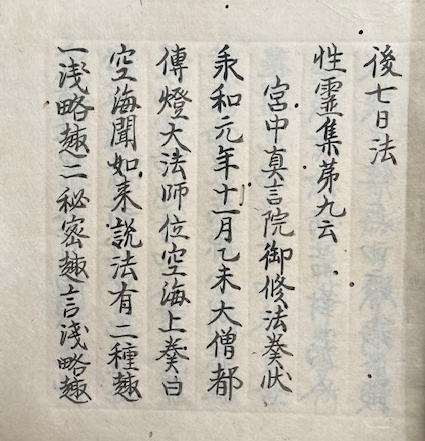 後七日法
性靈集苐九云
宮中真言院御修法奏状
羕和元年十一月乙未大僧都
傳燈大法師位空海上奏曰
空海聞如来説法有二種趣
一浅略趣二秘密趣言淺略趣